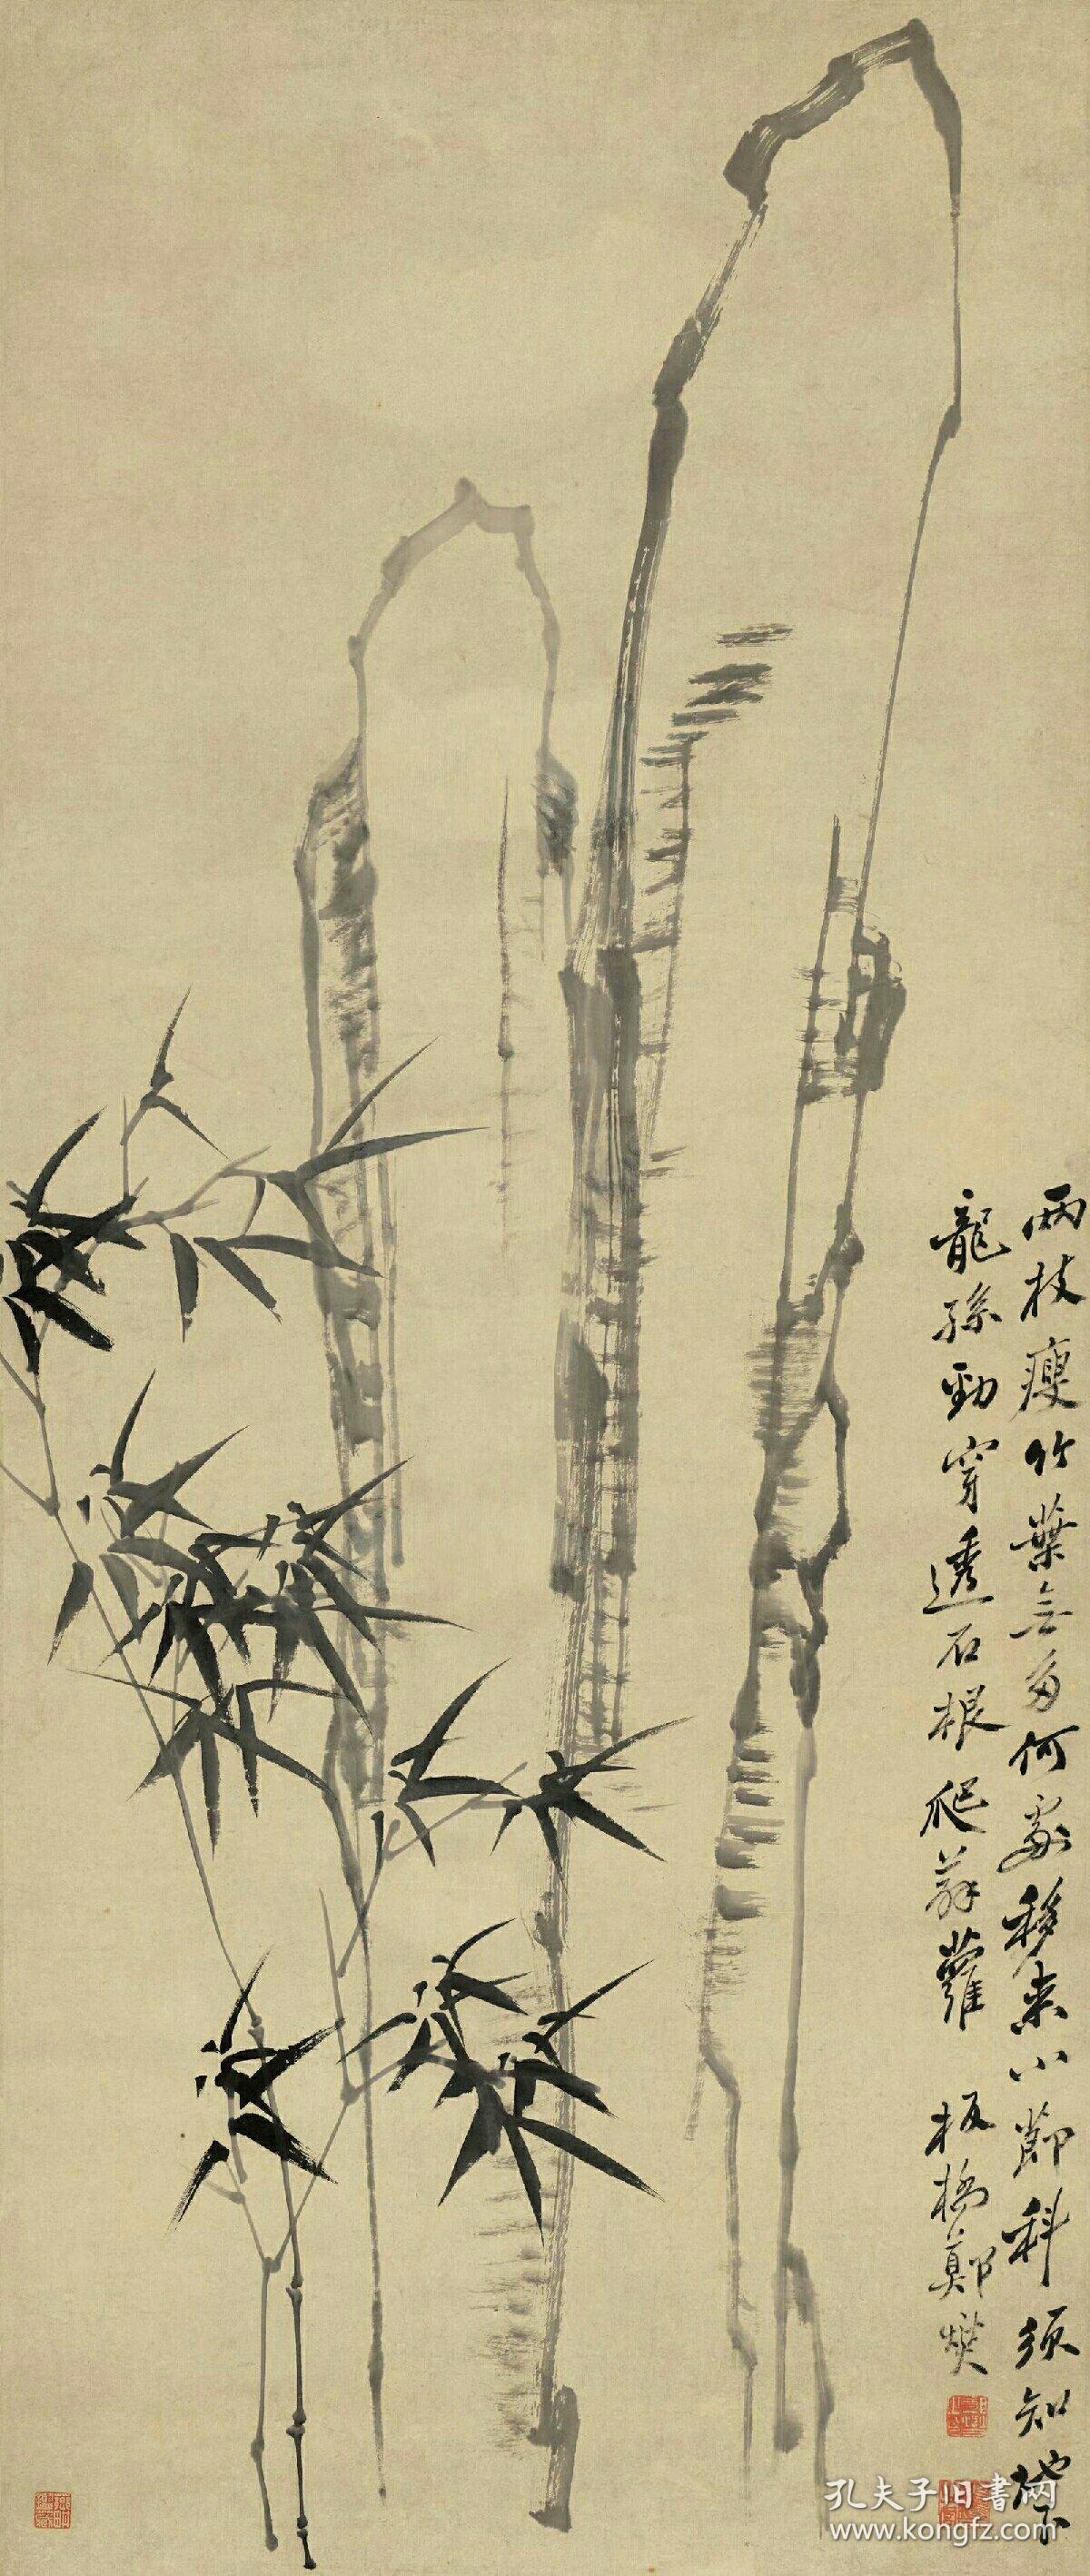 兩枝瘦竹葉無多何處移來小節科須知紫
龍孫勁穿透石根爬薜蘿 板橋鄭燮
孔夫子旧書网
www.kongfz.com